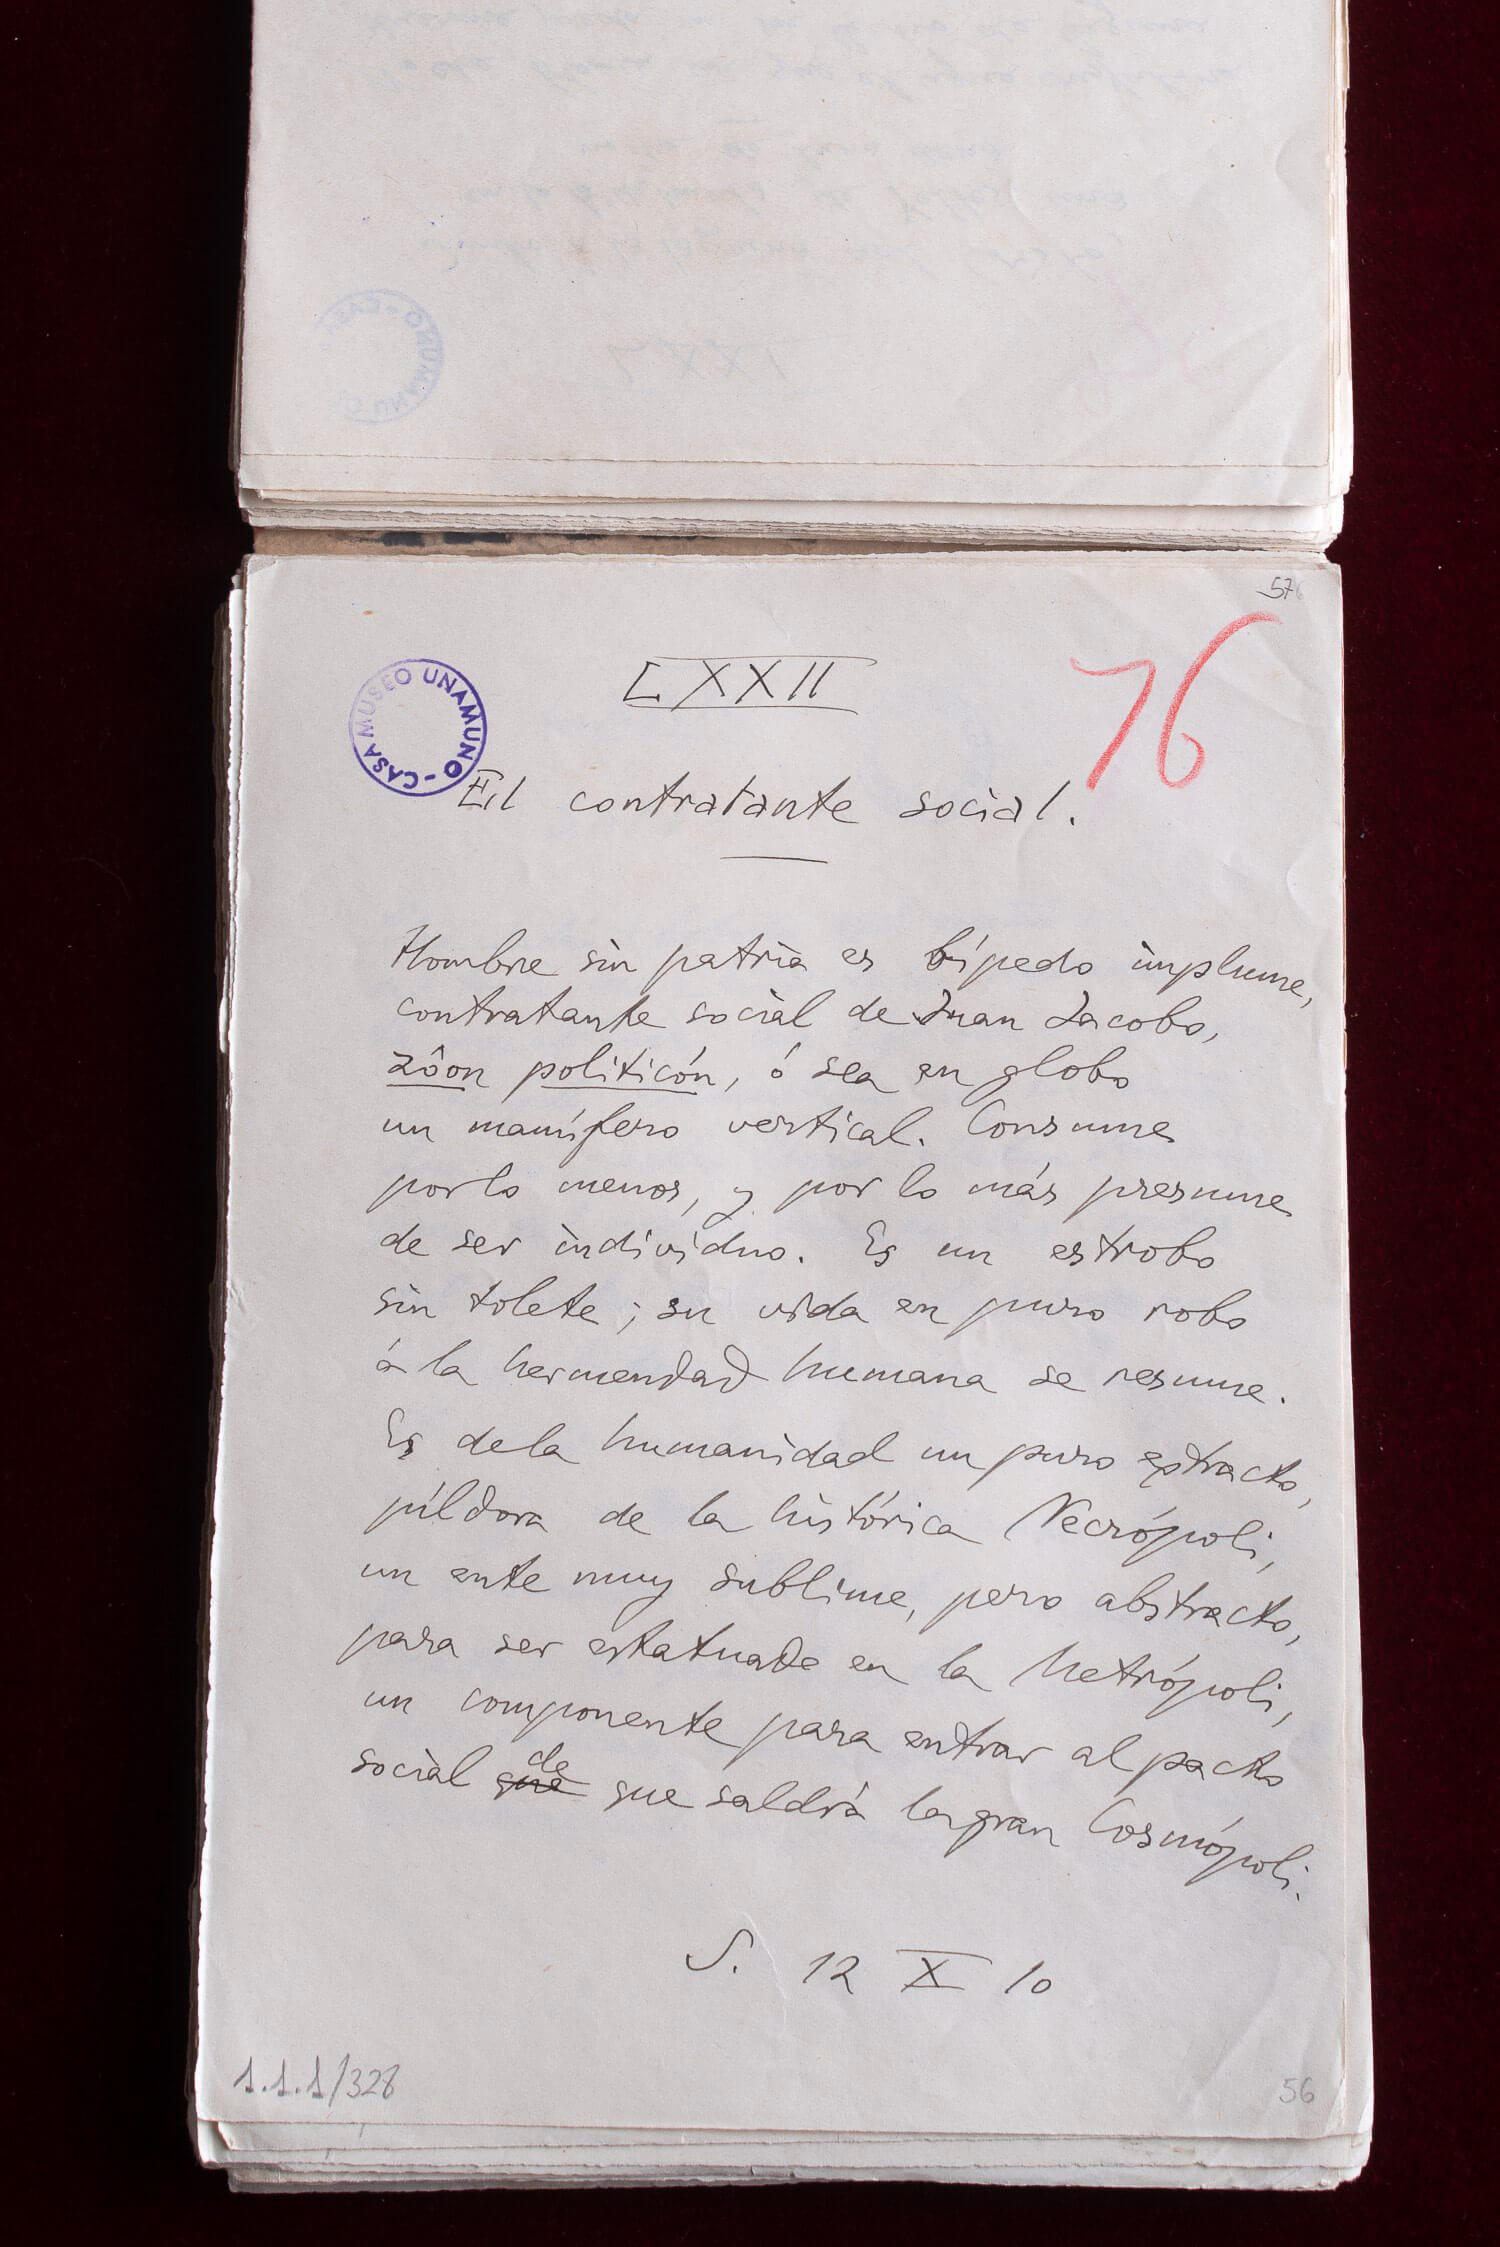 LXXI
57
LXXII
76
CASA MUSEO UNAMUNO -
El contratante social.
Hombre sin patria es bípedo implume,
contratante social de Juan Jacobo,
zôon politicón, ó sea en globo
un mamífero vertical. Consume
por lo menos, y por lo más presume
de ser individuo. Es un estrobo
sin tolete; su vida en puro robo
á la hermandad humana se resume.
Es de la humanidad un puro extracto,
píldora de la histórica Necrópoli,
un ente muy sublime, pero abstracto,
para ser estatuade en la Metrópoli,
un componente para entrar al pacto
social que de que saldrá la gran Cosmópoli.
S. 12 X 10
1.1.1/328
56